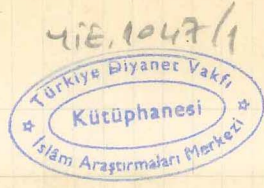 YİE.1047/1
Türkiye Diyanet Vakfı
Kütüphanesi
İslâm Araştırmaları Merkezi